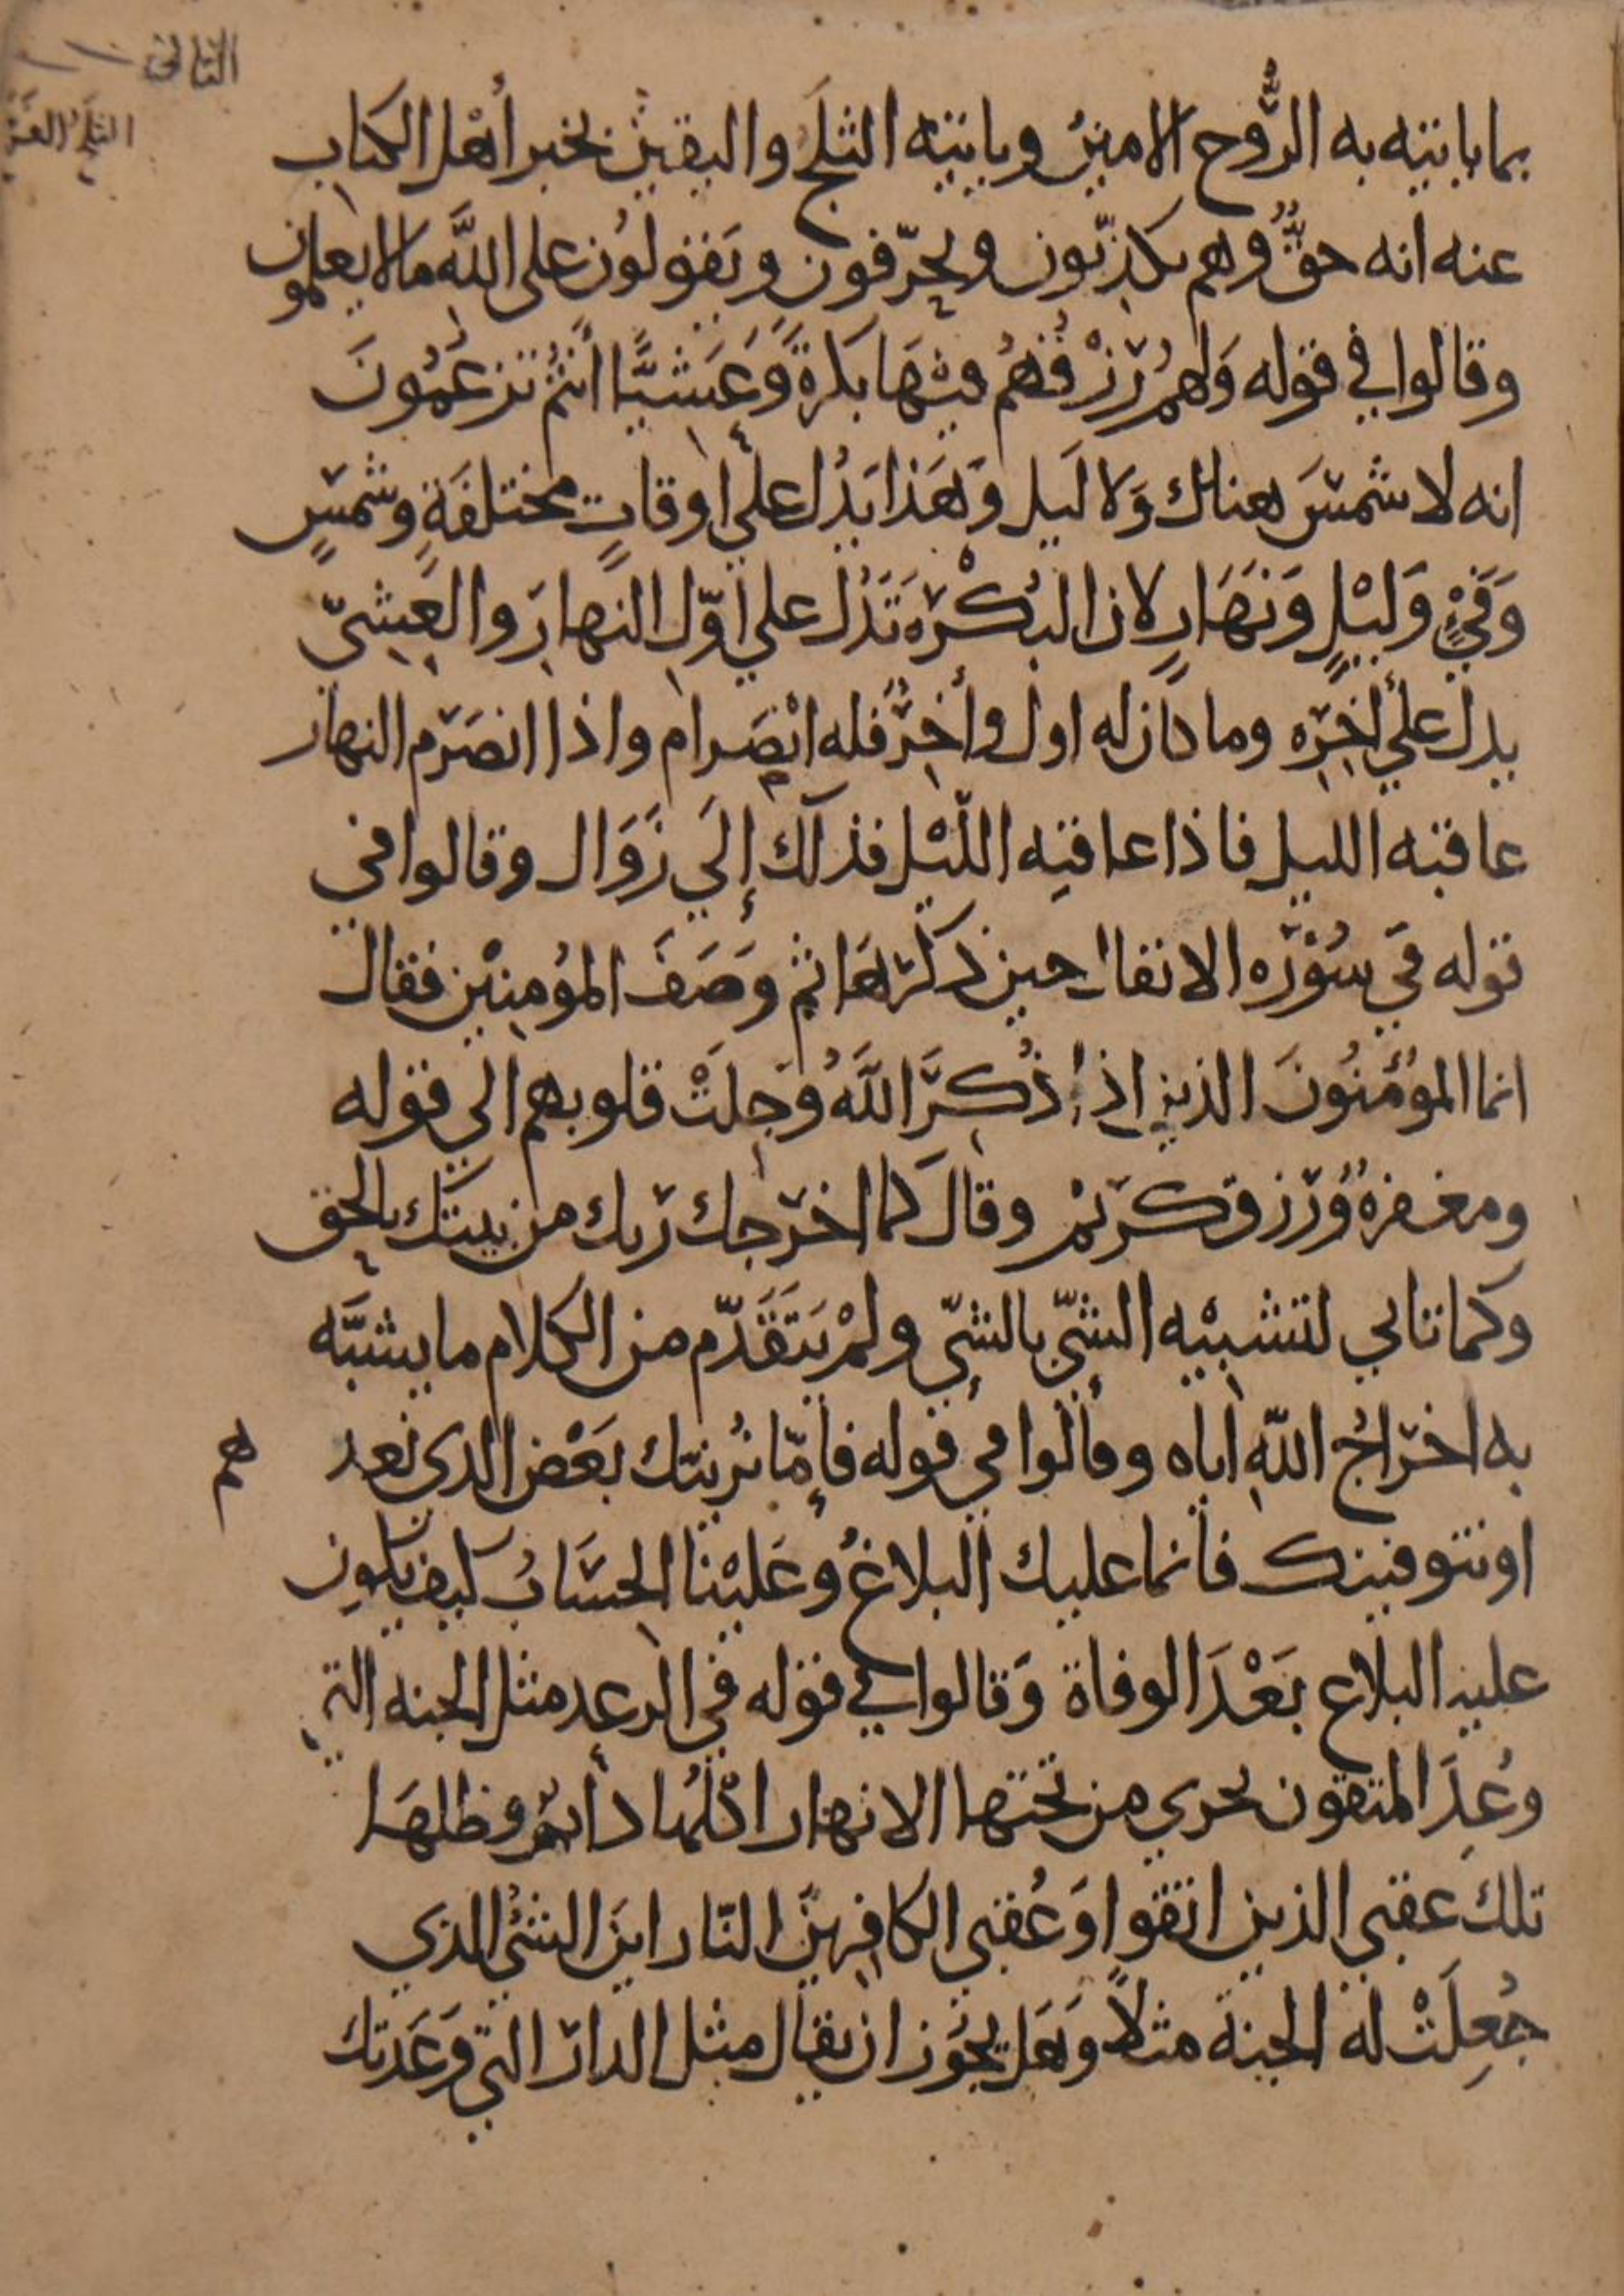 الثاني
الثلج
بما ياتيه به الرُّوح الامينُ وياتيه الثلَج واليقين بخبر أهْل الكتاب
عنه انه حقٌّ وهم يكذّبون ويحرّفون ويَقولوُن على اللَّه مالا يعلمون
وقالوا في قوله وَلهمُ رزْقُهُم فيْهَا بكرةً وَّعَشيًّا أنتُم تزعُمُونَ
انه لا شمسَ هناك وَلا لَيل وَهَذا يَدُل على اوقاتٍ مختلفَةٍ وشمسٍ
وَفَيْءٍ وَليْلٍ وَنَهَارٍ لان البُكْرَه تَدُل علي اوّل النهار والعَشيّ
يدل علي اخِرِه وما كان له اول وأخِرٌ فله انْصِرام واذا انصَرم النهار
عاقبه الليل فاذا عاقبَه اللّيْل فذلك إلَي زَوَال وقالوا في
قوله في سُوْرَه الانفال حين ذكَرهَا ثم وصَفَ المؤمنيْن فقال
انما المؤمنُونَ الذين اذا ذُكِرَ اللَّهُ وَجِلَتْ قلوبهم الي قوله
ومغفرةُ وُرزق كريمْ وقالَ كما اخرجك ربك من بيتك بالحق
وكما تاتي لتشبيْه الشيّ بالشيّ ولمْ يَتَقَدّم من الكلام ما يشبَّه
به اخراجُ اللّهِ اياه وقالوا في قوله فإمّا نُرينّك بَعْض الذي نعد هم
او نتوفينك فانما عليك البلاغُ وعَليْنا الحسَابُ كيف يكون
عليه البلاع بَعْدَ الوفاة وَقالوا في قوله في الرعد مثل الجنه التي
وُعِدَ المتقون تجري من تحتها الانهار اكْلُها دأئم وظلهَا
تلك عقبي الذين اتقوا وَعُقبي الكافِرينَ النّار اينَ الشيُ الذي
جُعِلَتْ له الجنة مثلًا وَهَل يَجُوز ان يقال مثل الدار التي وَعَدتك